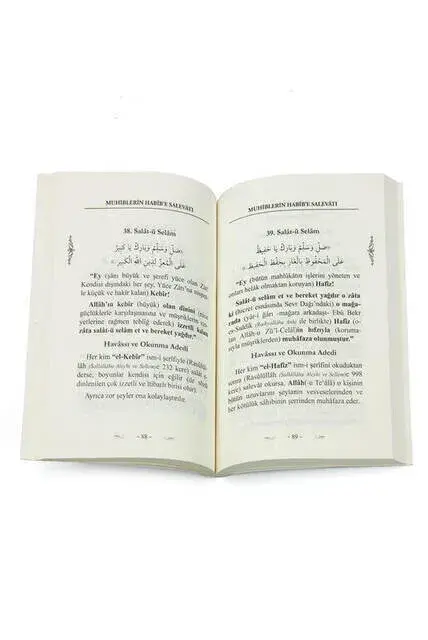 MUHİBLERİN HABÎB'E SALEVÂTI
38. Salât-ü Selâm
صَلِّ وَسَلِّمْ وَبَارِكْ يَا كَبِيرُ
عَلَى الْمُعِزِّ لِدِينِ اللّٰهِ الْكَبِيرِ
"Ey (şânı büyük ve şerefi yüce olan Zât!
Kendisi dışındaki her şey, Yüce Zâtı'na
le küçük ve hakir kalan) Kebîr!
Allâh'ın kebîr (büyük) olan dînini
güçlüklerle karşılaşmasına ve müşriklerin
yetlerine rağmen tebliğ ederek) izzetli kılan
zâta salât-ü selâm et ve bereket yağdır."
Havâssı ve Okunma Adedi
Her kim "el-Kebîr" ism-i şerîfiyle (Rasûlü-
lâh (Sallâllâhu Aleyhi ve Sellem)e 232 kere) salevât
derse, boyunlar kendisi için eğilir (de sözü
dinlenilen çok izzetli ve îtibarlı birisi olur).
Ayrıca zor şeyler ona kolaylaştırılır.
- 88 -
MUHİBLERİN HABÎB'E SALEVÂTI
39. Salât-ü Selâm
صَلِّ وَسَلِّمْ وَبَارِكْ يَا حَفِيظُ
عَلَى الْمَحْفُوظِ بِالْغَارِ بِحِفْظِ الْحَفِيظِ
"Ey (bütün mahlûkâtın işlerini yöneten ve
onları helâk olmaktan koruyan) Hafîz!
Salât-ü selâm et ve bereket yağdır o zâta
ki (hicret esnâsında Sevr Dağı'ndaki) o mağa-
rada (yâr-i ğarı -mağara arkadaşı- Ebû Bekr
es-Sıddîk (Radıyallâhu Anh) ile birlikte) Hafîz (koruma-
Allâh-u Zü'l-Celâl)in hıfzıyla (koruma-
sıyla müşriklerden) muhâfaza olunmuştur."
Havâssı ve Okunma Adedi
Her kim "el-Hafîz" ism-i şerîfini okuduktan
sonra (Rasûlüllâh (Sallâllâhu Aleyhi ve Sellem)e 998
kere) salevât okursa, Allâh(-u Te'âlâ) o kişinin
bütün uzuvlarını şeylanın vesveselerinden ve
her kötülük sâhibinin şerrinden muhâfaza eder.
- 89 -